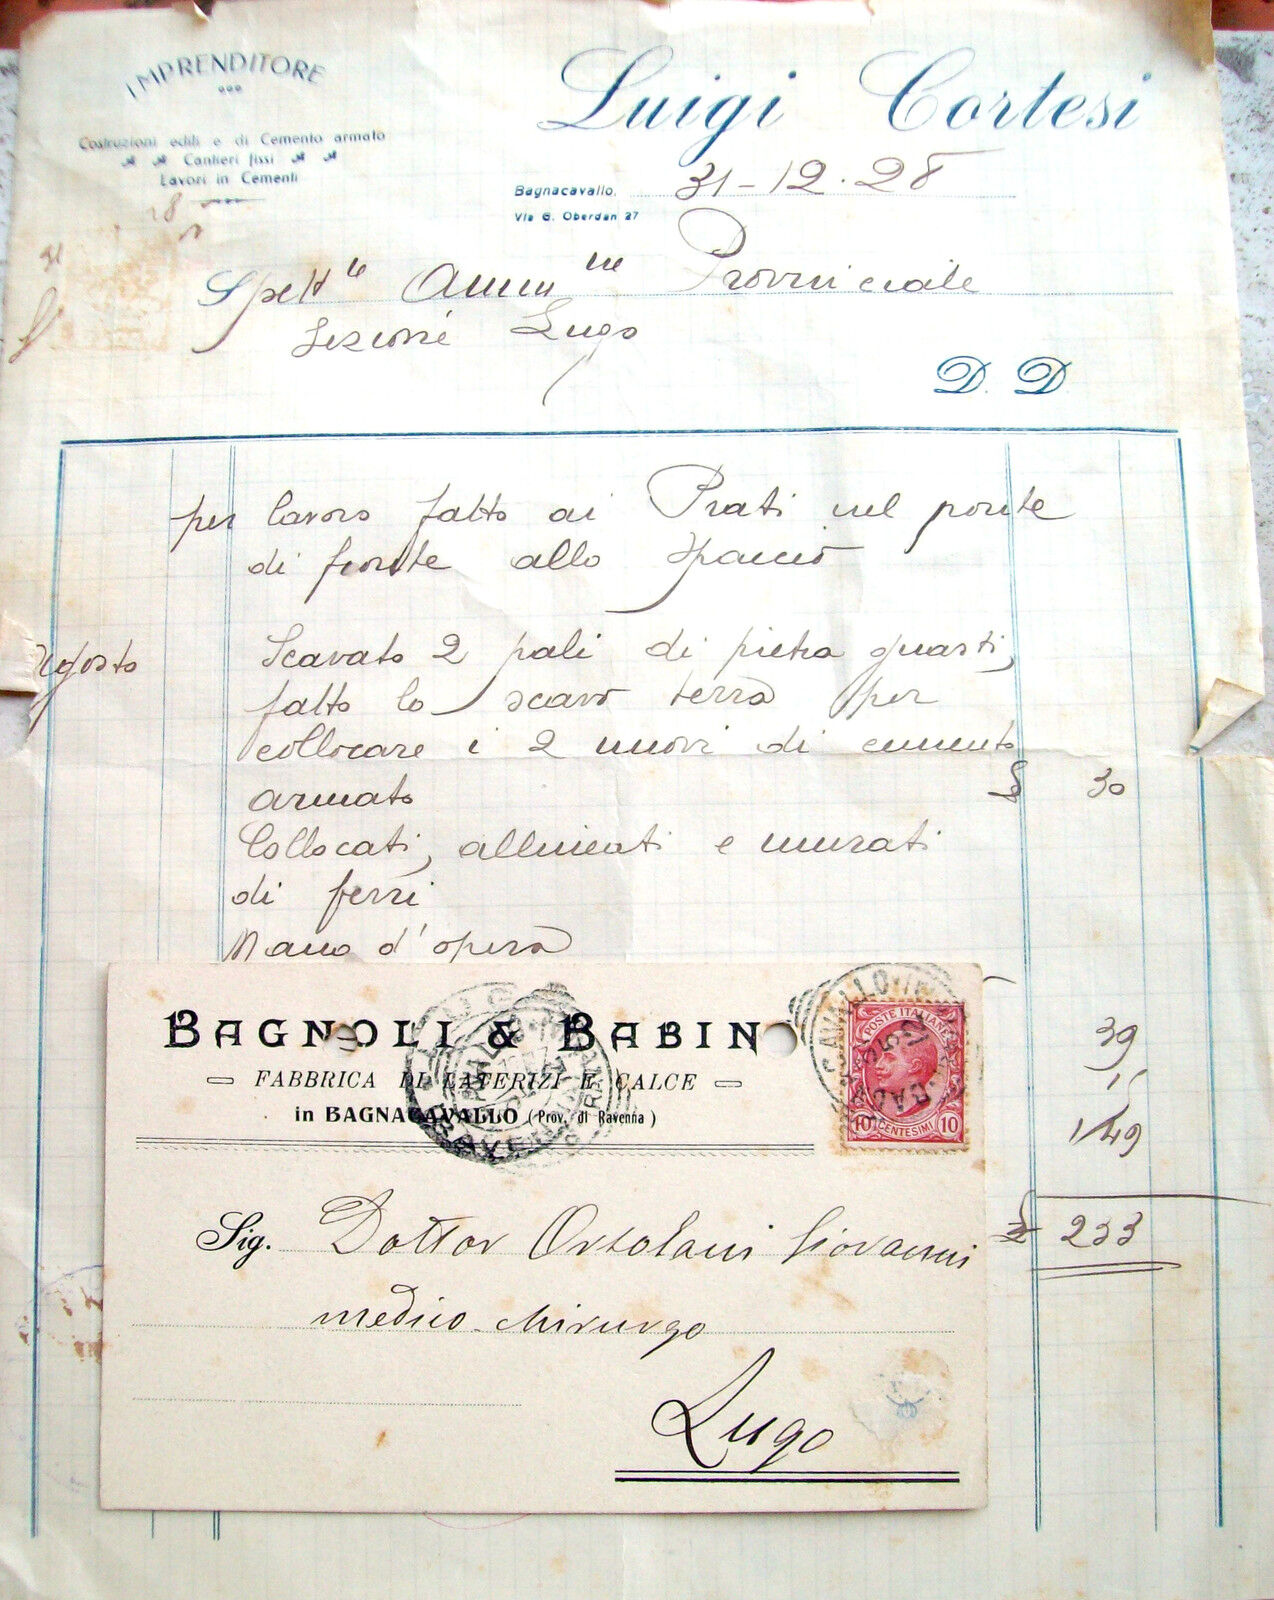 IMPRENDITORE
Costruzioni edili e di Cemento armato
Cantieri fissi
Lavori in Cementi
Luigi Cortesi
Bagnacavallo, 31-12.28
Via G. Oberdan 27
Spett le Amm ne Provinciale
Sezione Lugo
D. D.
per lavoro fatto ai Prati nel ponte
di fronte allo spaccio
Agosto Scavato 2 pali di pietra guasti,
fatto lo scavo terra per
collocare i 2 nuovi di cemento
armato £ 30
Collocati, allineati e murati
di ferri
Mano d'opera
39
15
149
£ 233
BAGNOLI & BABIN
FABBRICA DI LATERIZI E CALCE
in BAGNACAVALLO (Prov. di Ravenna)
POSTE ITALIANE
10 CENTESIMI 10
Sig. Dottor Ortolani Giovanni
medico-chirurgo
Lugo